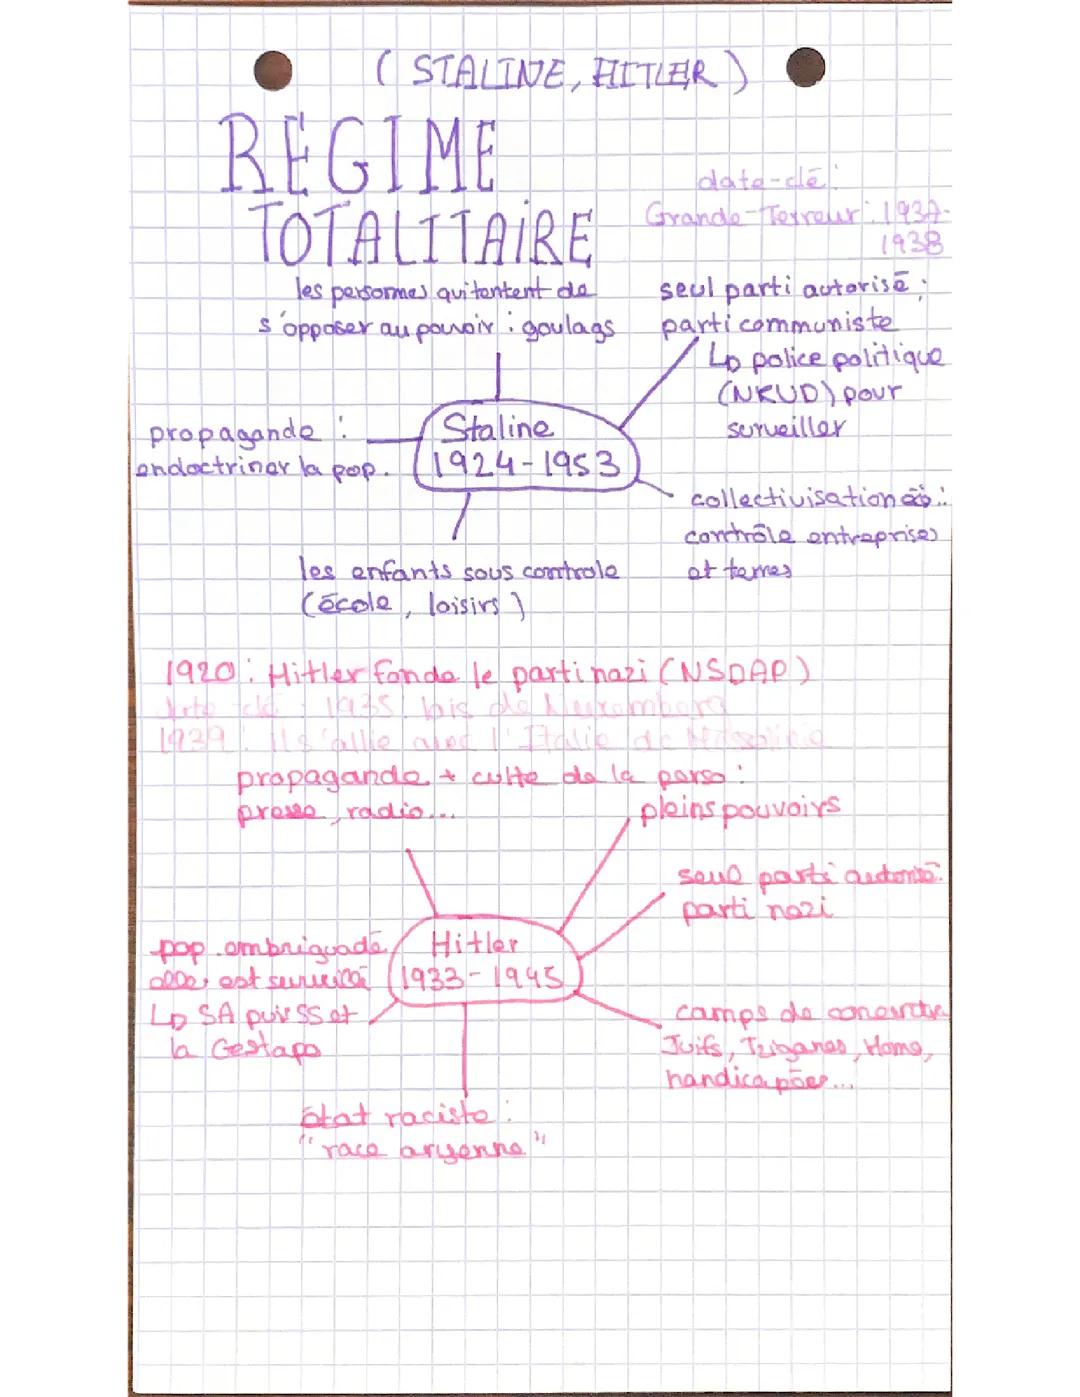 (STALINE, HITLER)
RÉGIME
TOTALITAIRE
date-clé :
Grande-Terreur : 1937-
1938
les personnes qui tentent de
s'opposer au pouvoir : goulags
seul parti autorisé :
parti communiste
↳ police politique
(NKVD) pour
surveiller
propagande :
endoctriner la pop.
Staline
1924-1953
collectivisation éco :
contrôle entreprises
et terres
les enfants sous controle
(école, loisirs)
1920 : Hitler fonde le parti nazi (NSDAP)
date clé : 1935 : lois de Nuremberg
1939 : il s'allie avec l'Italie de
propagande + culte de la perso :
presse, radio...
pleins pouvoirs
seul parti autorisé :
parti nazi
pop. embriguadé,
elle est surveillé
↳ SA puis SS et
la Gestapo
Hitler
1933-1945
camps de
Juifs, Tziganes, Homo,
handicapées...
état raciste :
"race aryenne"